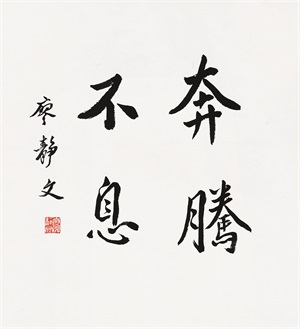 奔騰
不息
廖靜文